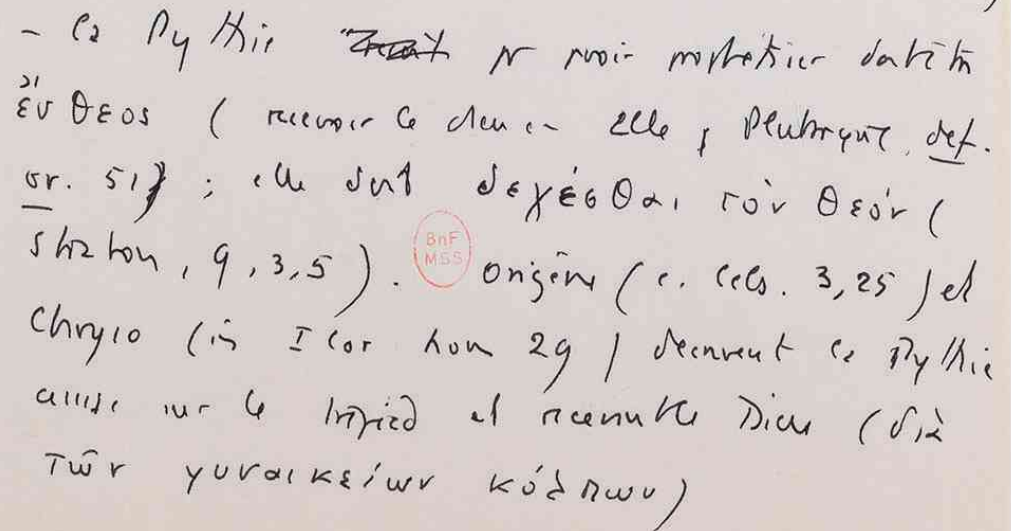 - la Pythie pr pouvoir prophétiser doit être
ἔνθεος ( recevoir le dieu en elle, Plutarque, def.
or. 51) ; elle doit δεχέσθαι τὸν θεόν (
Strabon, 9, 3, 5 ). Origène ( c. Cels. 3, 25 ) et
BnF
MSS
Chryso ( in I Cor hom 29 ) décrivent la Pythie
assise sur le trépied et recevant le Dieu ( διὰ
τῶν γυναικείων κόλπων)